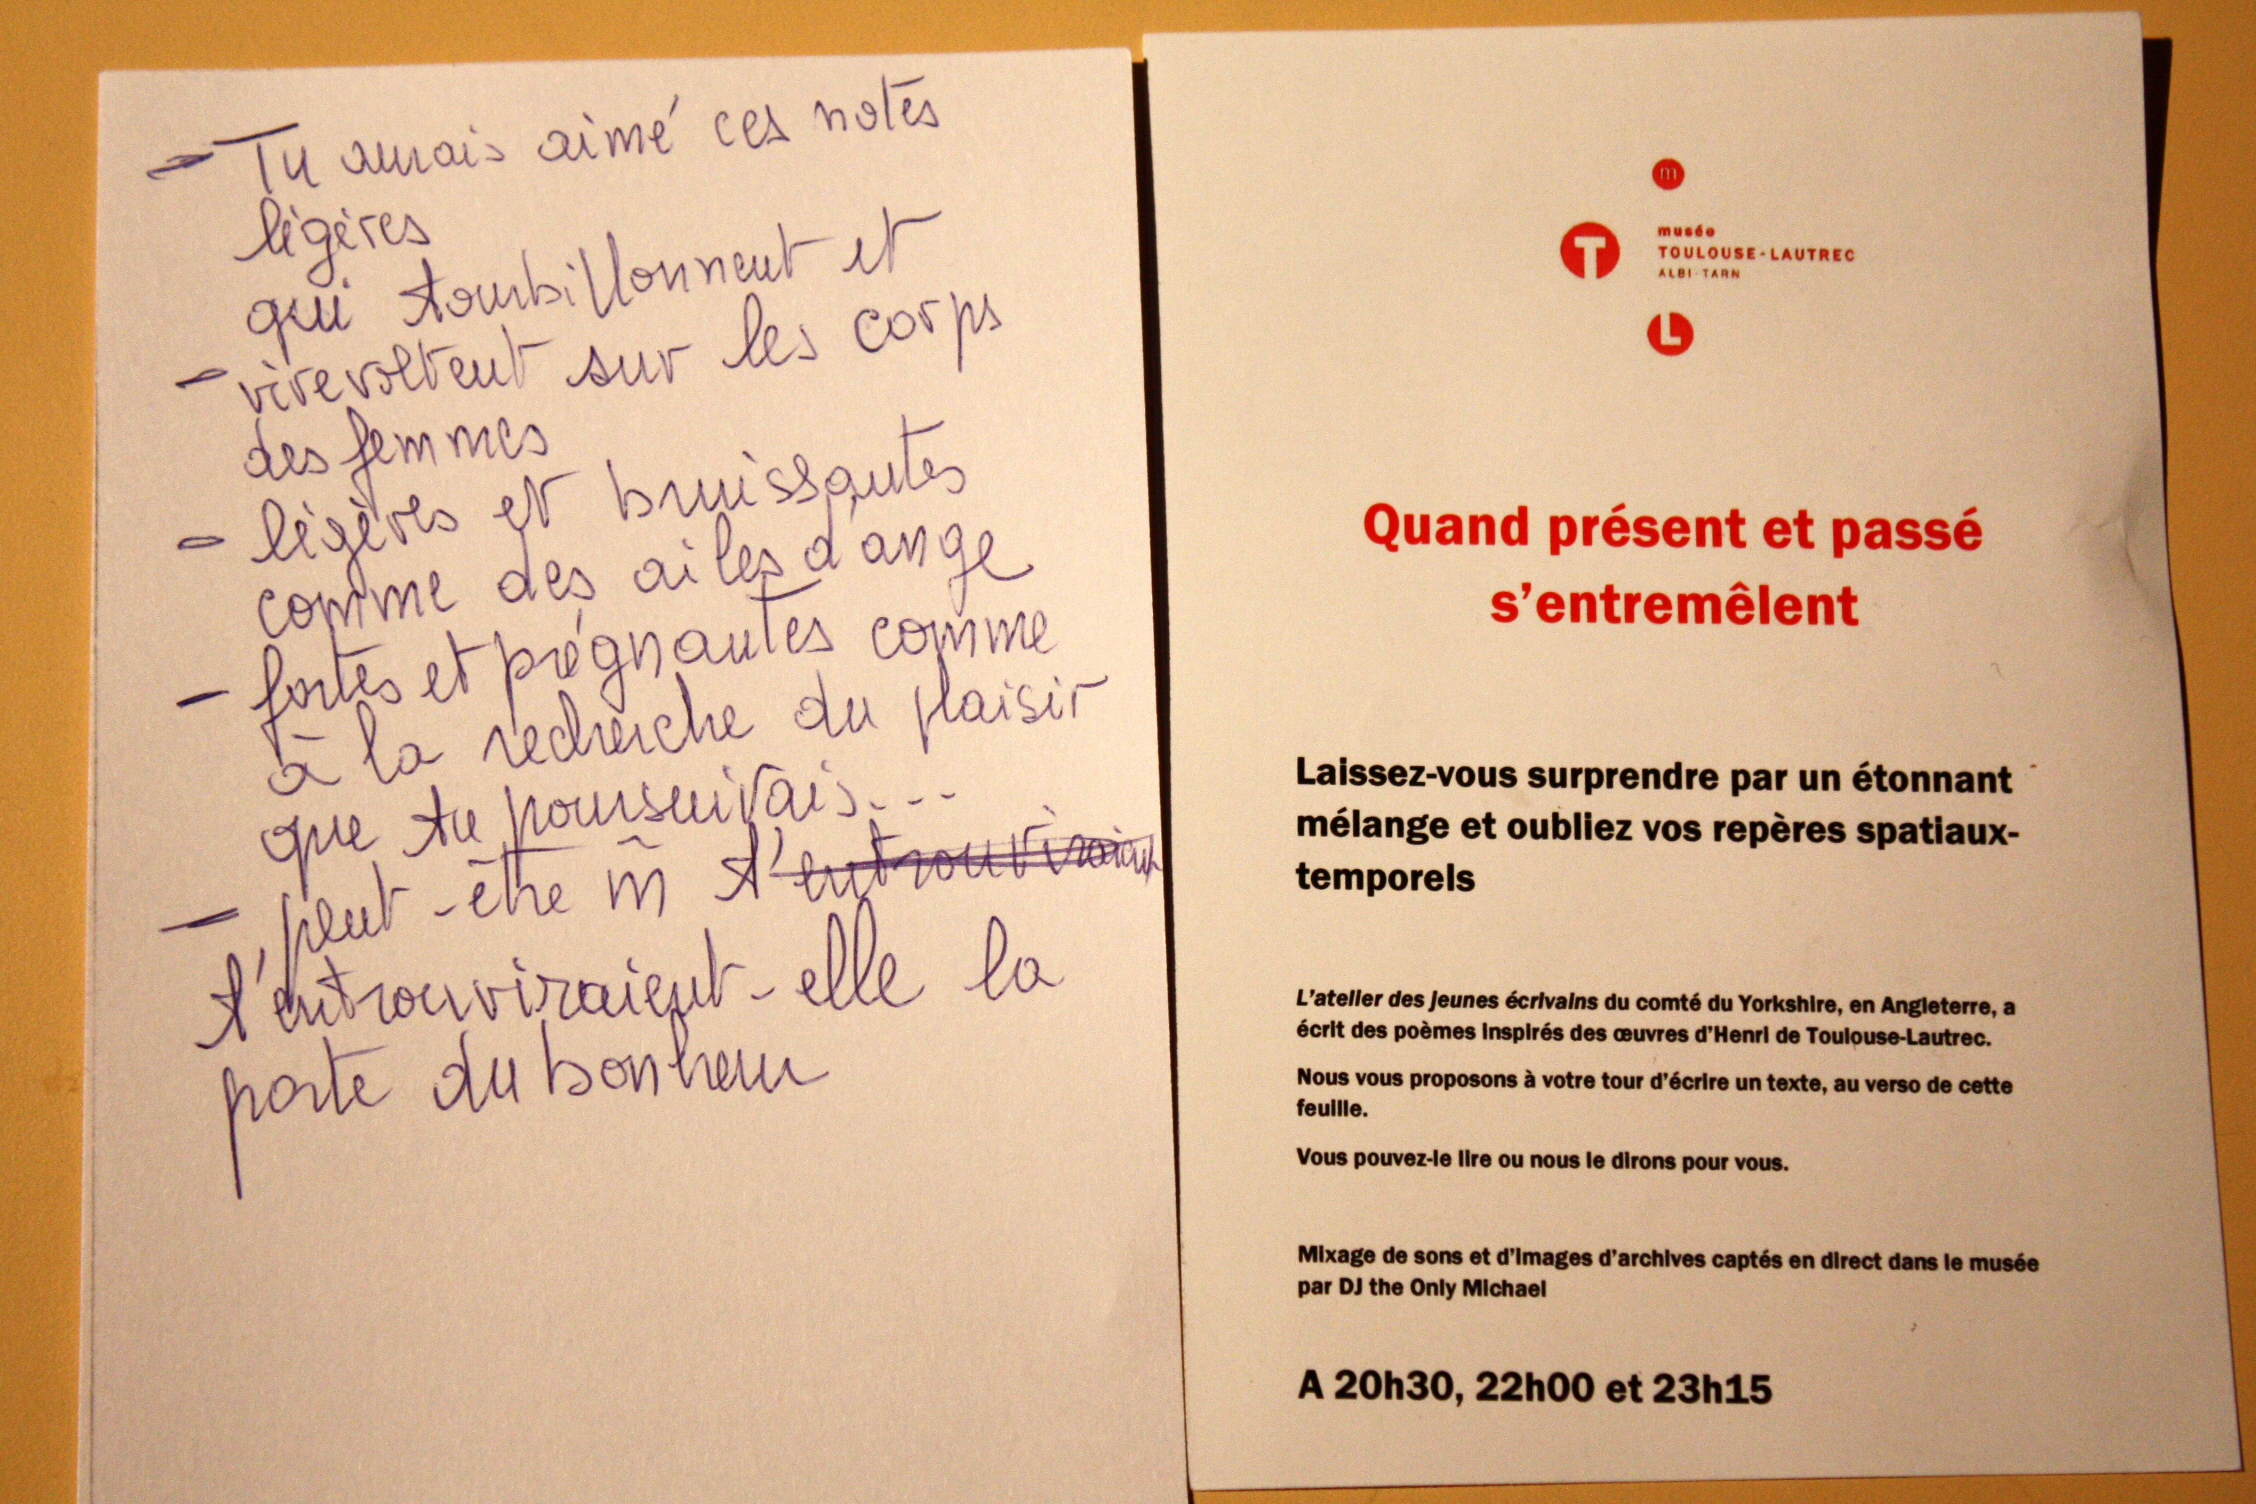 - Tu aurais aimé ces notes
légères
qui tourbillonnent et
- virevoltent sur les corps
des femmes
- légères et bruissantes
comme des ailes d'ange
- fortes et prégnantes comme
à la recherche du plaisir
que tu poursuivais...
- peut-être m̃ t'entrouviraient
t'entrouviraient-elle la
porte du bonheur
m
T
musée
TOULOUSE-LAUTREC
ALBI-TARN
L
Quand présent et passé
s'entremêlent
Laissez-vous surprendre par un étonnant
mélange et oubliez vos repères spatiaux-
temporels
L'atelier des jeunes écrivains du comté du Yorkshire, en Angleterre, a
écrit des poèmes inspirés des œuvres d'Henri de Toulouse-Lautrec.
Nous vous proposons à votre tour d'écrire un texte, au verso de cette
feuille.
Vous pouvez-le lire ou nous le dirons pour vous.
Mixage de sons et d'images d'archives captés en direct dans le musée
par DJ the Only Michael
A 20h30, 22h00 et 23h15